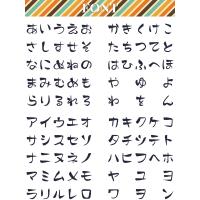 FONT
あいうえお かきくけこ
さしすせそ たちつてと
なにぬねの はひふへほ
まみむめも や ゆ よ
らりるれろ わ を ん
アイウエオ カキクケコ
サシスセソ タチツテト
ナニヌネノ ハヒフヘホ
マミムメモ ヤ ユ ヨ
ラリルレロ ワ ヲ ン